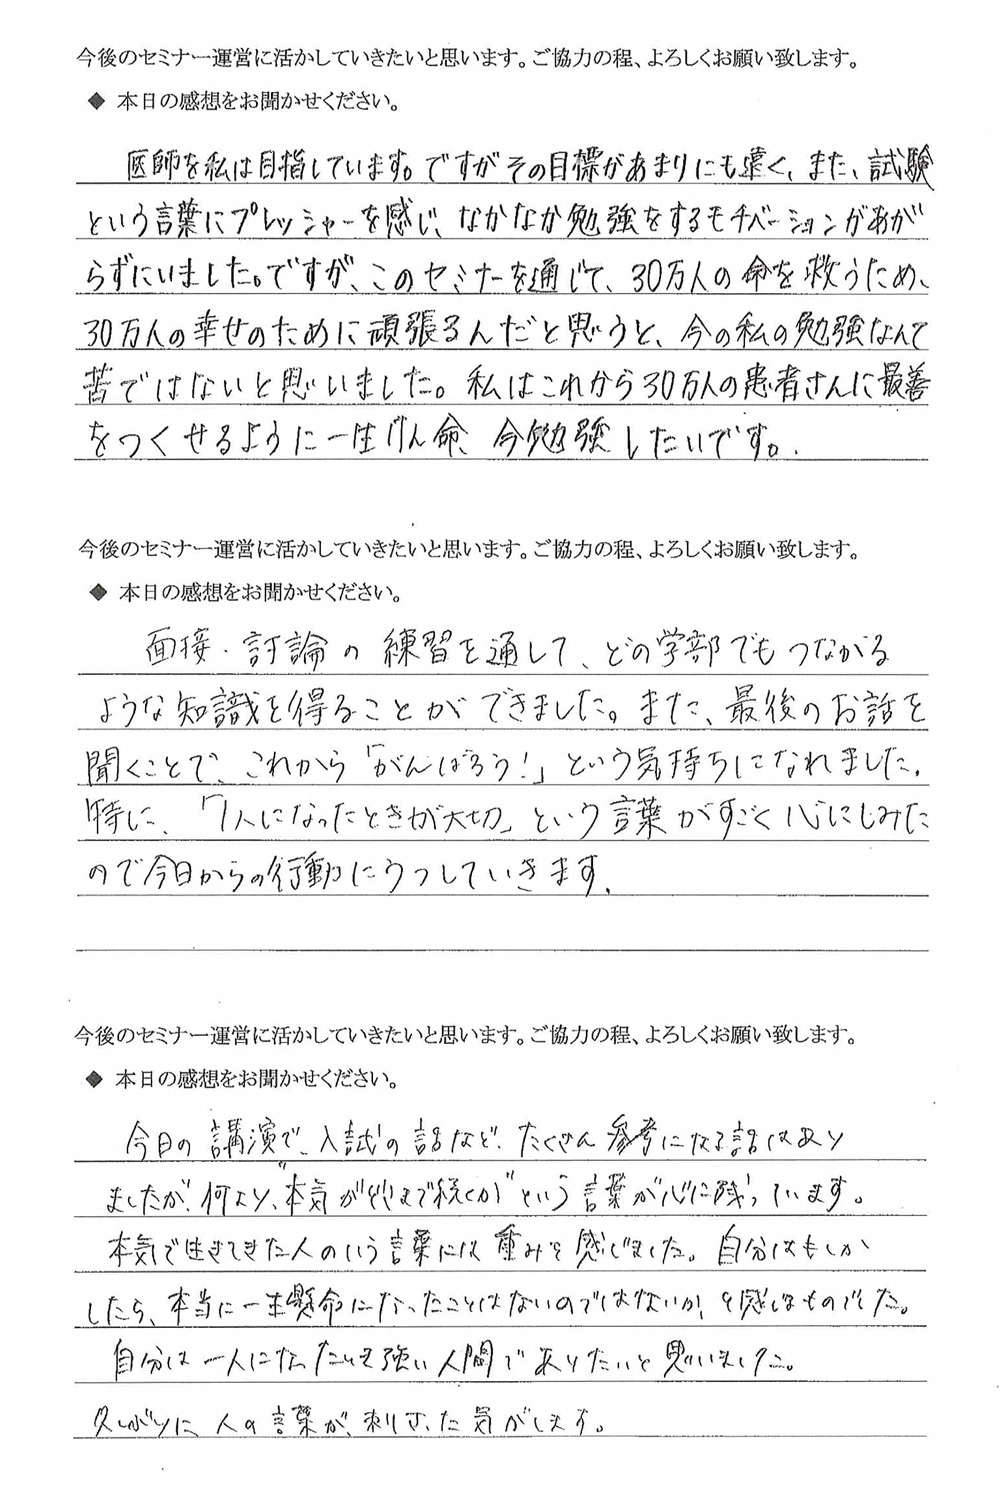 今後のセミナー運営に活かしていきたいと思います。ご協力の程、よろしくお願い致します。
◆ 本日の感想をお聞かせください。
医師を私は目指しています。ですがその目標があまりにも遠く、また、試験
という言葉にプレッシャーを感じ、なかなか勉強をするモチベーションがあが
らずにいました。ですが、このセミナーを通じて、30万人の命を救うため、
30万人の幸せのために頑張るんだと思うと、今の私の勉強なんて
苦ではないと思いました。私はこれから30万人の患者さんに最善
をつくせるように一生けん命、今勉強したいです。
今後のセミナー運営に活かしていきたいと思います。ご協力の程、よろしくお願い致します。
◆ 本日の感想をお聞かせください。
面接・討論の練習を通して、どの学部でもつながる
ような知識を得ることができました。また、最後のお話を
聞くことで、これから「がんばろう!」という気持ちになれました。
特に、「1人になったときが大切」という言葉がすごく心にしみた
ので今日からの行動にうつしていきます。
今後のセミナー運営に活かしていきたいと思います。ご協力の程、よろしくお願い致します。
◆ 本日の感想をお聞かせください。
今日の講演で、入試の話など、たくさん参考になる話はあり
ましたが、何より、"本気が何まで続くか"という言葉が心に残っています。
本気で生きてきた人のいう言葉には重みを感じました。自分はもしか
したら、本当に一生懸命になったことはないのではないか、と感じるものでした。
自分は一人になっても強い人間でありたいと思いました。
久しぶりに人の言葉が、刺さった気がします。